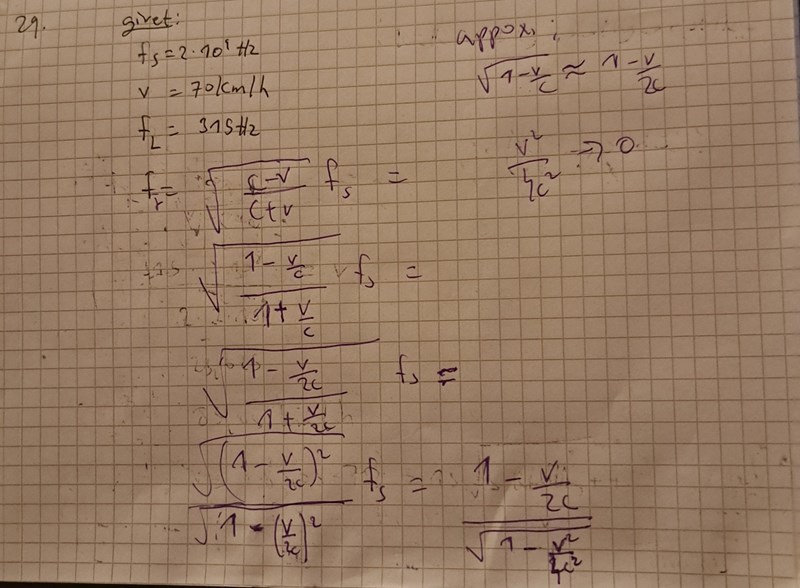 29.
givet:
f_s = 2·10⁹ Hz
v = 70 km/h
f_L = 315 Hz
f_r = √((c-v)/(c+v)) f_s =
√((1 - v/c)/(1 + v/c)) f_s =
√((1 - v/2c)/(1 + v/2c)) f_s =
√((1 - v/2c)²)/√(1 - (v/2c)²) f_s = (1 - v/2c)/√(1 - v²/4c²)
appox:
√(1 - v/c) ≈ 1 - v/2c
v²/4c² → 0